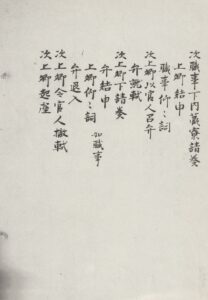 次職事下内蔵寮請奏
上卿結申
職事仰ゝ詞
次上卿以官人召弁
弁就軾
次上卿下請奏
弁結申
上卿仰ゝ詞 如職事
弁退入
次上卿令官人撤軾
次上卿起座